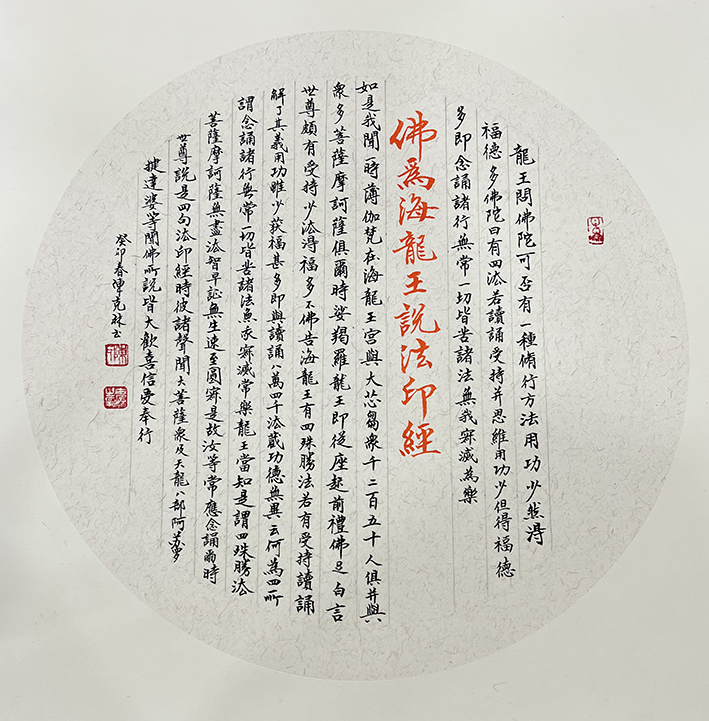 龍王問佛陀可否有一種脩行方法用功少然淂
福德多佛陀曰有四法若讀誦受持并思維用功少但得福德
多即念誦諸行無常一切皆苦諸法無我寂滅為樂
佛為海龍王說法印經
如是我聞一時薄伽梵在海龍王宮與大苾芻衆千二百五十人俱并與
衆多菩薩摩訶薩俱爾時娑羯羅龍王即從座起前禮佛足白言
世尊頗有受持少法淂福多不佛告海龍王有四殊勝法若有受持讀誦
解了其義用功雖少获福甚多即與讀誦八萬四千法藏功德無異云何為四所
謂念誦諸行無常一切皆苦諸法無我寂滅常樂龍王當知是謂四殊勝法
菩薩摩訶薩無盡法智早証無生速至圓寂是故汝等常應念誦爾時
世尊說是四句法印經時彼諸聲聞大菩薩衆及天龍八部阿蘇羅
揵達婆等聞佛所說皆大歡喜信受奉行
癸卯春陳克林書